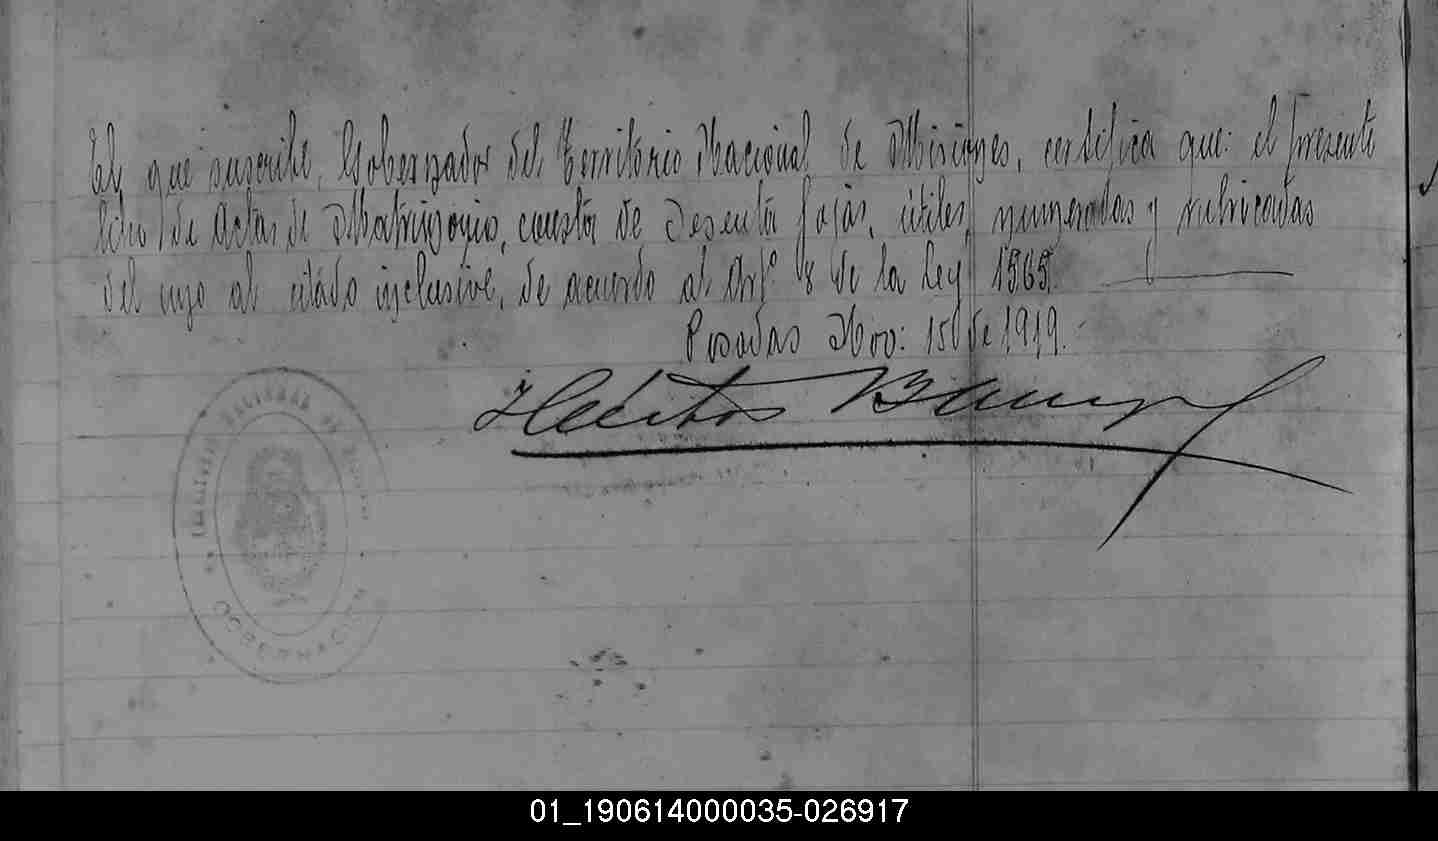 El que suscribe, Gobernador del Territorio Nacional de Misiones, certifica que: el presente
libro de Actas de Matrimonio, consta de sesenta fojas, útiles, numeradas y rubricadas
del uno al citádo inclusive, de acuerdo al Art.º 8 de la Ley 1565.
Posadas Nov: 15 de 1919.
TERRITORIO NACIONAL DE
GOBERNACION
01_190614000035-026917